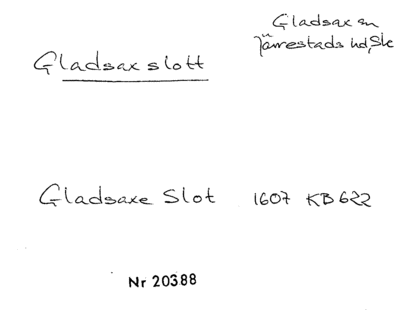 Gladsax sn
Järrestads hd, Sk
Gladsax slott
Gladsaxe Slot 1607 KB 622
Nr 20388